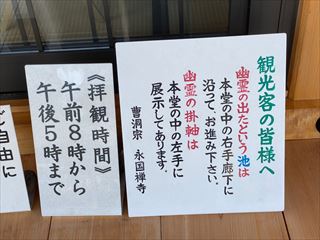 観光客の皆様へ
幽霊の出たという池は
本堂の中の右手廊下に
沿って、お進み下さい。
幽霊の掛軸は
本堂の中の左手に
展示してあります。
曹洞宗 永国禅寺
《拝観時間》
午前8時から
午後5時まで
ご自由に